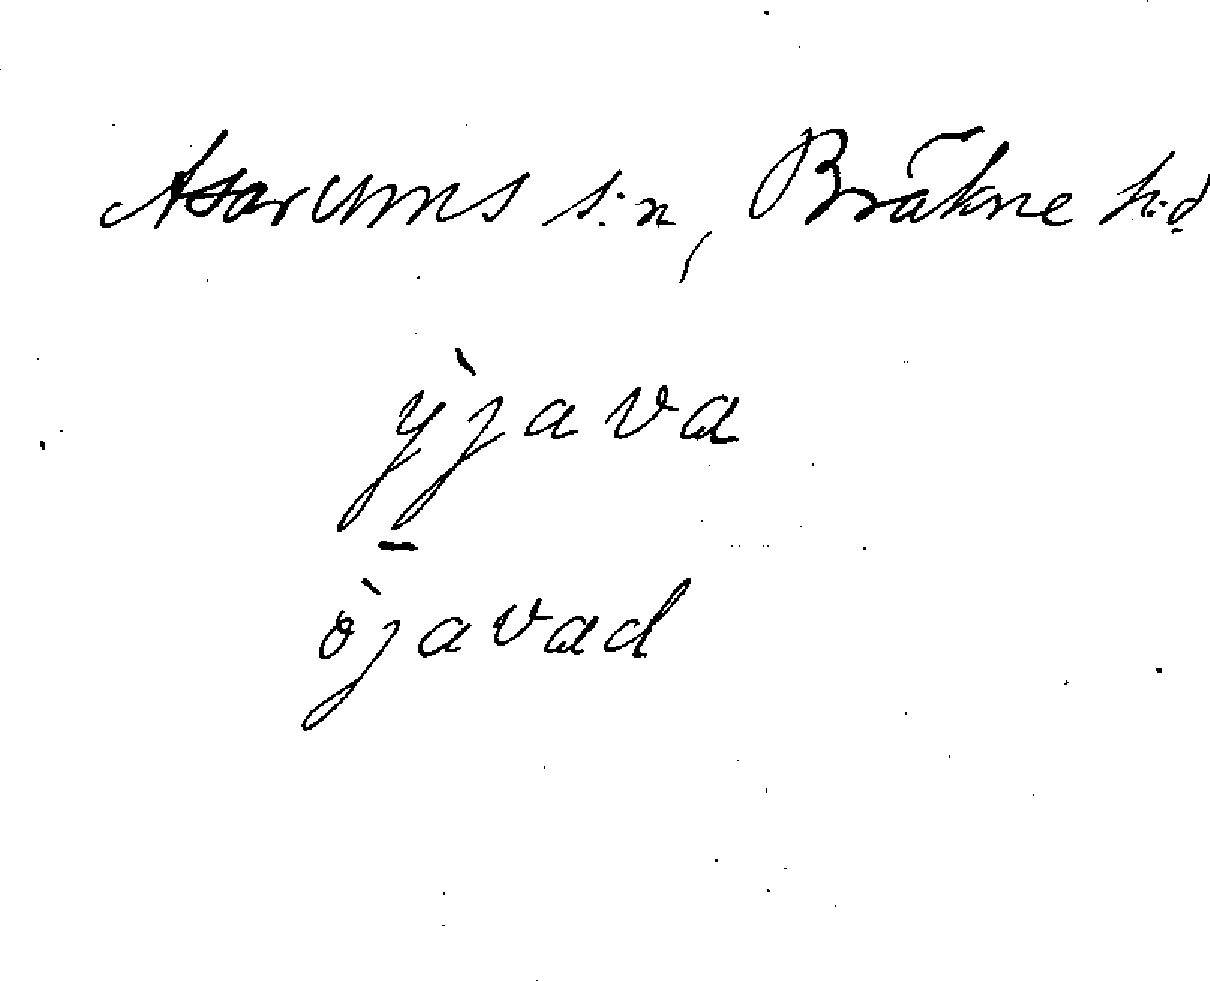 Asarums s:n, Bräkne h:d
ỳjava
òjavad